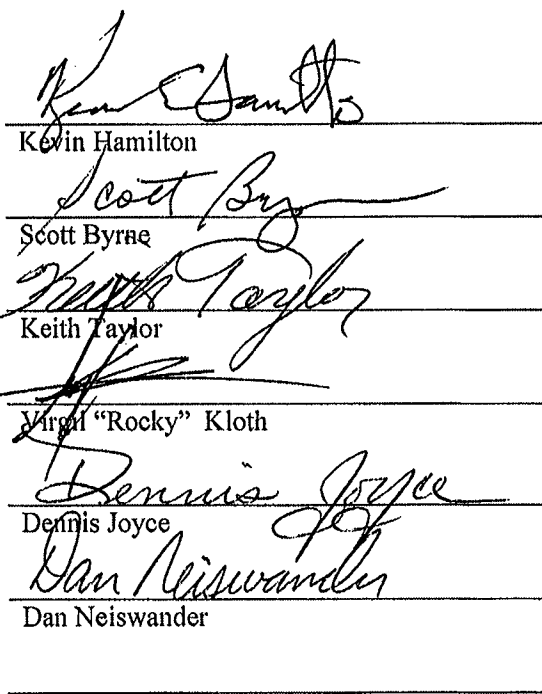 Kevin E Hamilton
Kevin Hamilton
Scott Byrne
Scott Byrne
Keith Taylor
Keith Taylor
Virgil “Rocky” Kloth
Dennis Joyce
Dennis Joyce
Dan Neiswander
Dan Neiswander